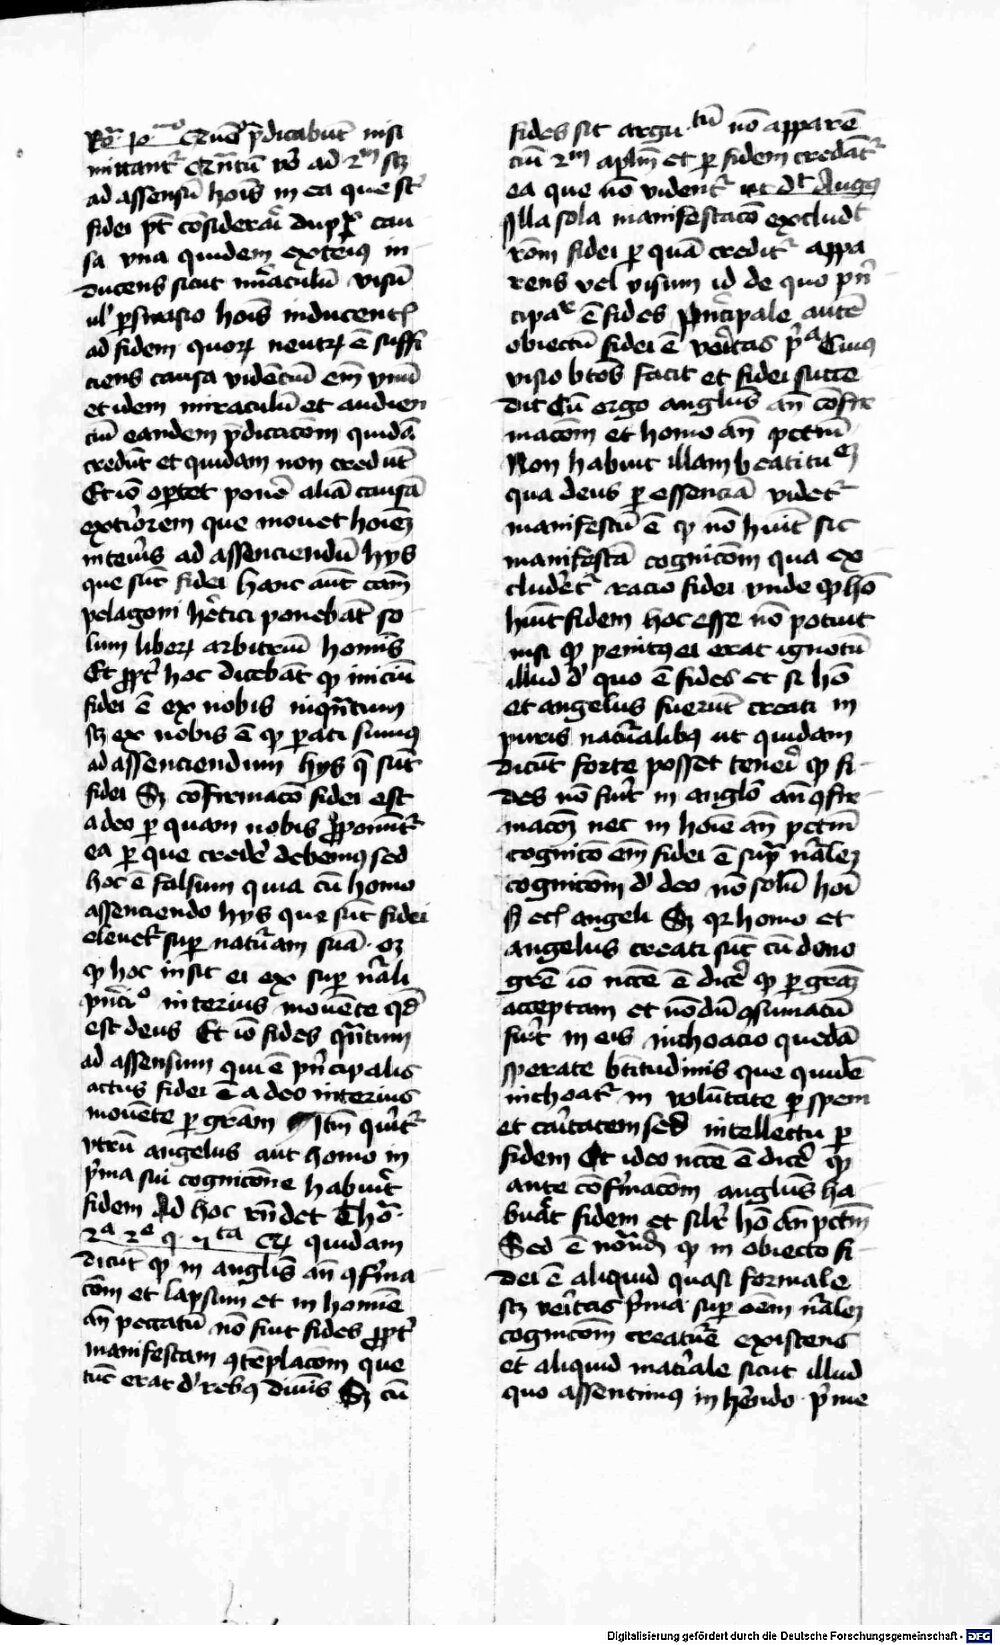 Rō. 10 mo Quō p̄dicabūt nisi
mittant᷑ Qn̄tū v̄o ad 2m scꝫ
ad assensū hoīs in ea que st᷑
fidei pt̄ cōsiderari dupꝉ cau
sa vna quidem exteꝰ in
ducens sicut miͣaculū visū
ulˀ ꝑsuasio hoīs inducentꝭ
ad fidem quoꝝ neutꝝ ē suffi
ciens causa vidēciū em̄ vnū
et idem miraculū et audien
ciū eandem p̄dicacōm quidā
credūt et quidam non credūt
Et iō oportet ponē aliā causā
ext̓iorem que mouet hoīeꝫ
int̓ius ad assenciendū hys
que sūt fidei hanc aūt cam̄
pelagoni hētici ponebāt so
lum liberꝝ arbitriū hominis
Et ꝓpt̓ hoc dicebāt ꝙ iniciū
fidei ē ex nobis inqn̄tum
scꝫ ex nobis ē ꝙ ꝑati sumꝰ
ad assenciendum hys q̄ sūt
fidei Sꝫ cōfirmacō fidei est
a deo ꝑ quam nobis ꝓponūt᷑
ea ꝑ que credē debemꝰ sed
hoc ē falsum quia cū homo
assenciendo hys que sūt fidei
eleuet᷑ supͣ naturam suā oꝫ
ꝙ hoc insit ei ex supͣ nāli
pͥncio interius mouēte qd̄
est deus Et iō fides qn̄tum
ad assensum qui ē pͥncipalis
actus fidei ē a deo interius
mouēte ꝑ grām Itm̄ querit᷑
vtrū angelus aut homo in
pͥma sui cognicōne habuit̄
fidem Ad hoc rn̄det Thō.
2a 2e q. 5 ta Qꝝ quidam
dicūt ꝙ in anglis̄ an̄ ꝯfirma
cōm et lapsum et in homīe
an̄ peccatū nō fuit fides ꝓpt̓
manifestam ꝯtēplacōm que
tūc erat d̓ rebꝰ diuīs Sꝫ cū
fides sit argu.tū nō apparē
ciū 2m aplm̄ et ꝑ fidem credāt᷑
ea que nō vident᷑ ut dt̄ Augꝰ
Illa sola manifestacō excludt̄
rōm fidei ꝑ quā credit᷑ appa
rens vel visum id de quo pͥn
cipaꝉ ē fides Pͥncipale autē
obiectū fidei ē vēitas pͥa Cuiꝰ
visio btōs facit et fidei succe
dit Cū ergo anglus̄ an̄ cōfir
macōm et homo an̄ pctm̄
Non habuit illam beatitu eꝫ
qua deus ꝑ essenciā videt᷑
manifestū ē ꝙ nō huīt sic
manifestā cognicōm qua ex
cludēt᷑ racio fidei vnde ꝙ hō
huīt fidem hoc esse nō potuit
nisi ꝙ penitꝰ ei erat ignotū
illud d̓ quo ē fides et si hō
et angelus fuerūt creati in
puris naturalibꝰ ut quidam
dicūt forte posset teneri ꝙ fi
des nō fuit̄ in anglō an̄ ꝯfir
macōꝫ nec in hoīe an̄ pctm̄
cognicō em̄ fidei ē supͣ nāleꝫ
cognicōm d̓ deo nō solū hoīs
sꝫ etꝭ angeli Sꝫ qꝛ homo et
angelus creati sūt cū dono
grē iō ncc̄e ē dicē ꝙ ꝑ grāꝫ
acceptam et nōdū ꝯsumatū
fuit̄ in eis inchoacio quedā
sperate btitudinis que quidē
inchoat᷑ in voluntate ꝑ spem
et caritatem sed intellectu ꝑ
fidem Et ideo ncc̄e ē dicē ꝙ
ante cōfirmacōm anglus̄ ha
buāt fidem et silr̄ hō an̄ pctm̄
Sed ē notandū ꝙ in obiecto fi
dei ē aliquid quasi formale
scꝫ vēitas pͥma supͣ oēm nāleꝫ
cognicōm creature existens
et aliquid mat̓iale sicut illud
quo assentimꝰ inherendo pͥme
Digitalisierung gefördert durch die Deutsche Forschungsgemeinschaft - DFG